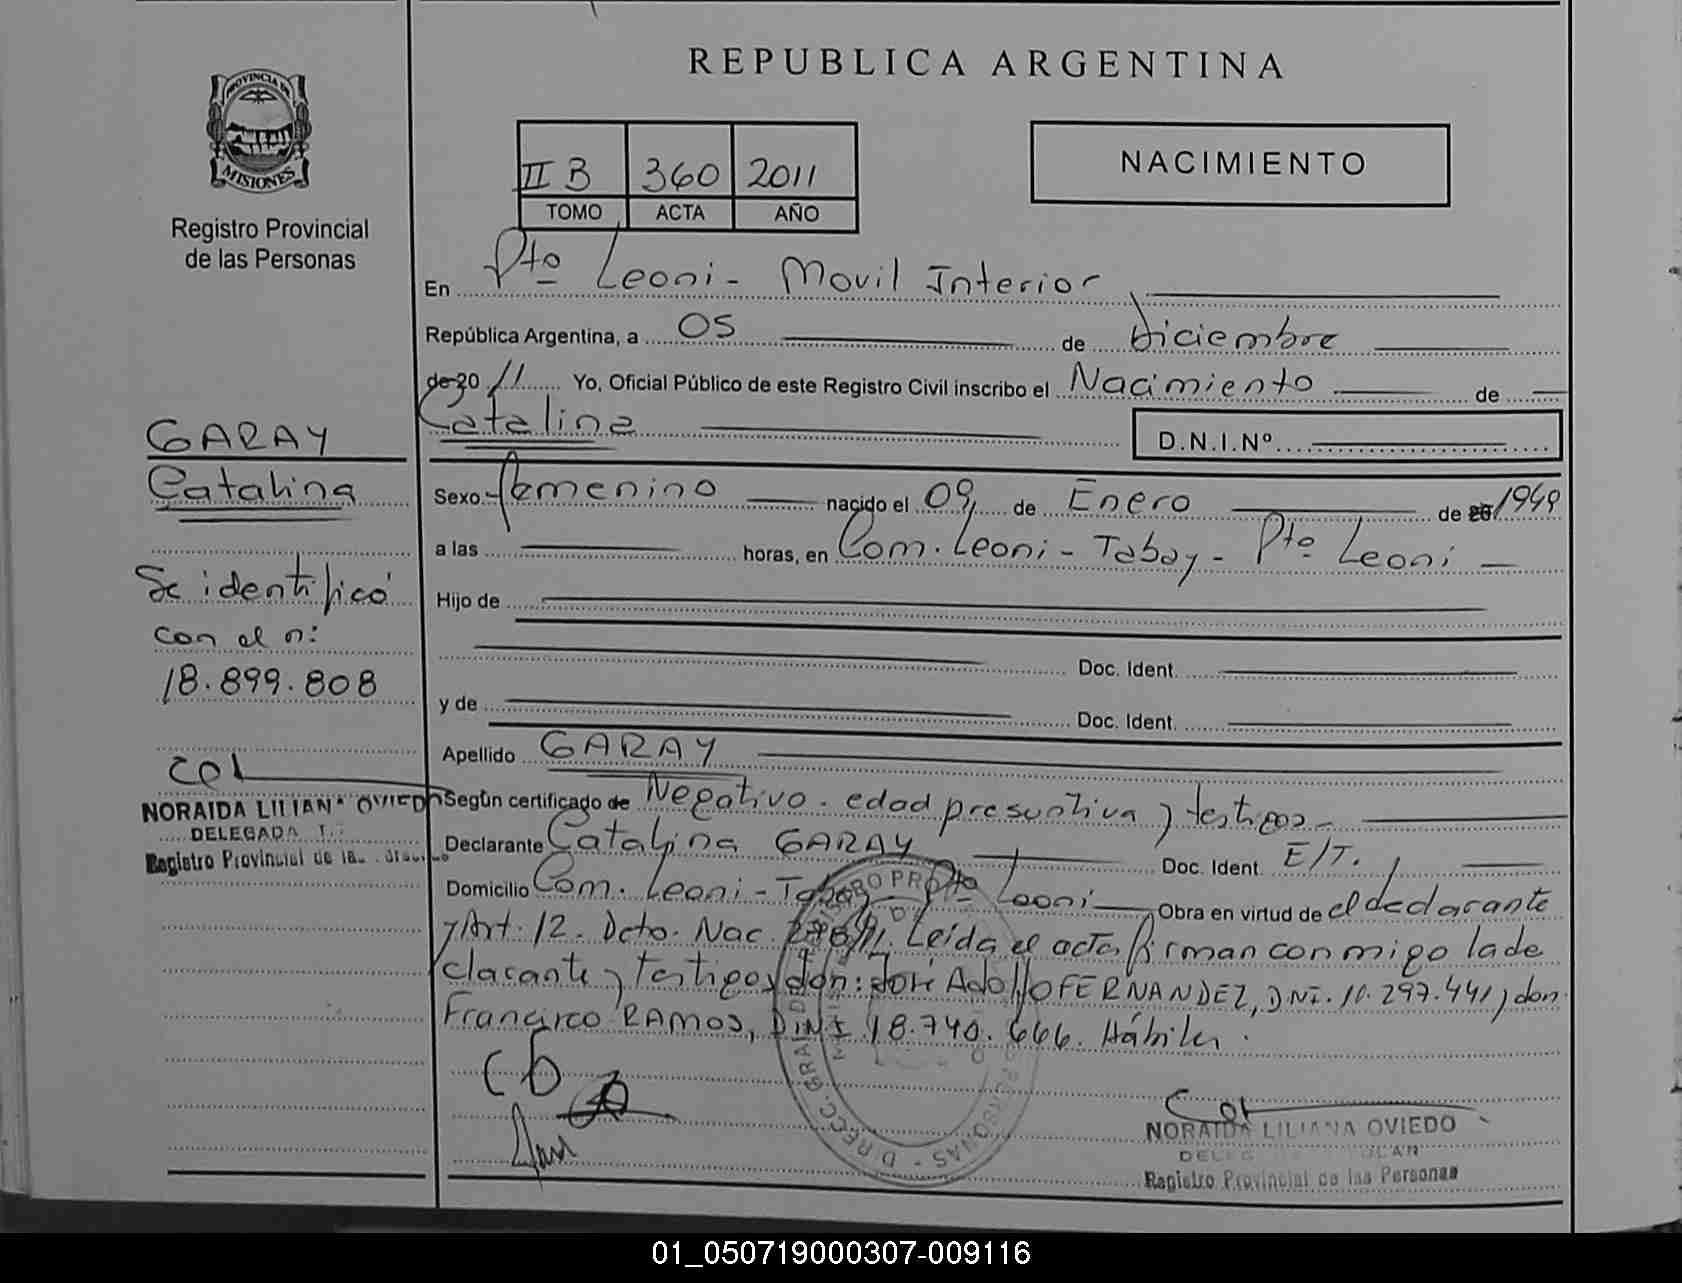 REPUBLICA ARGENTINA
PROVINCIA DE
MISIONES
Registro Provincial
de las Personas
II B 360 2011
TOMO ACTA AÑO
NACIMIENTO
En Pto Leoni - Movil Interior
República Argentina, a 05 de Diciembre
de 20 11 Yo, Oficial Público de este Registro Civil inscribo el Nacimiento de
Catalina D.N.I.Nº
GARAY
Catalina
Se identificó
con el n:
18.899.808
NORAIDA LILIANA OVIEDO
DELEGADA
Registro Provincial de las
Sexo femenino nacido el 09 de Enero de 1949
a las horas, en Com. Leoni - Tabay - Pto Leoni
Hijo de
Doc. Ident.
y de Doc. Ident.
Apellido GARAY
Según certificado de Negativo. edad presuntiva y testigos
Declarante Catalina GARAY Doc. Ident. E/T.
Domicilio Com. Leoni - Tabay - Pto Leoni Obra en virtud de el declarante
y Art. 12. Dcto. Nac. Leída el acta firman conmigo la de
clarante y testigos don: José Adolfo FERNANDEZ, DNI. 10.297.441 y don
Francisco RAMOS, DNI 18.740.666. Hábiles.
NORAIDA LILIANA OVIEDO
Registro Provincial de las Personas
01_050719000307-009116